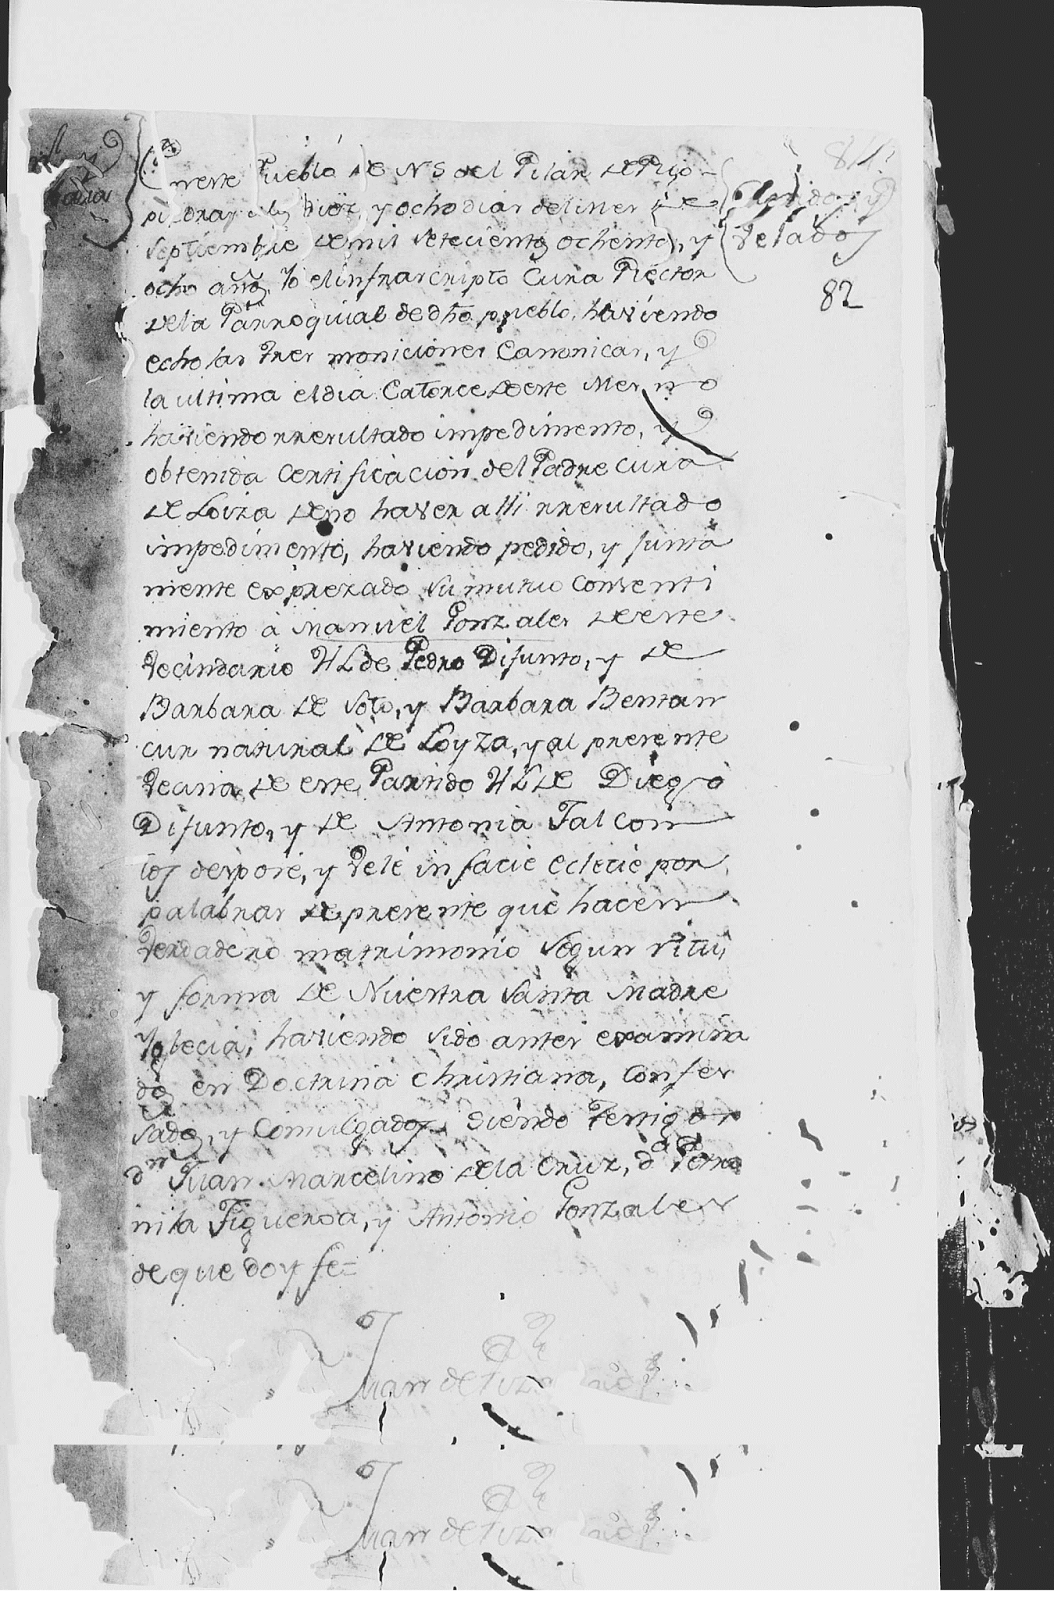 En este Pueblo de N S del Pilar de Rio
piedras a los diez, y ocho dias del mes de
Septiembre de mil setecientos ochenta, y
ocho añs. Yo el infrascripto Cura Rector
de la Parroquial de dho pueblo, haviendo
echo las tres moniciones Canonicas, y
la ultima el dia Catorce de este Mes, no
haviendo rresultado impedimento, y
obtenida Certificacion del Padre Cura
de Loiza de no haver alli rresultado
impedimento, haviendo pedido, y junta
mente exprezado su mutuo consenti
miento à Manuel Gonzales de este
Vecindario H L de Pedro Difunto, y de
Barbara de Soto, y Barbara Bentan
cur natural de Loyza, y al presente
Vecina de este Partido H L de Diego
Difunto, y de Antonia Falcon
los despose, y Velè in facie eclecie por
palabras de presente que hacen
Verdadero matrimonio segun ritu,
y forma de Nuestra Santa Madre
Yglecia, haviendo sido antes examina
dos en Doctrina Christiana, confes
sados, y Comulgados, Siendo Testigos
dn Juan Marcelino de la Cruz, dª Petro
nila Figueroa, y Antonio Gonzales
de que doy fe=
Velados
82
Juan de
Juan de